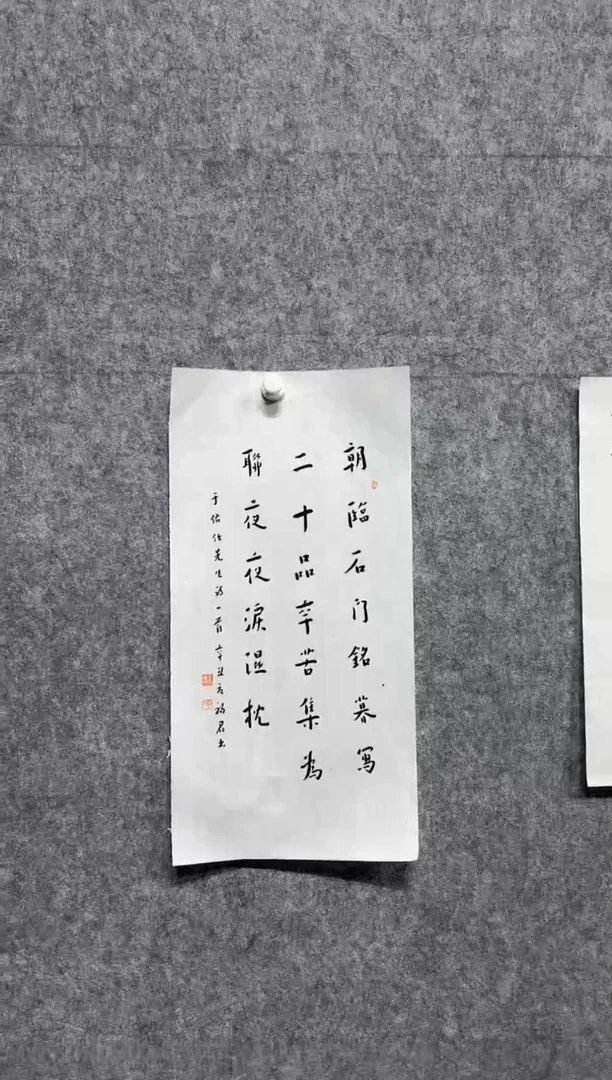 朝臨石门銘暮寫
二十品辛苦集為
聯夜夜淚湿枕
于佑任先生诗一首 辛丑 福君书